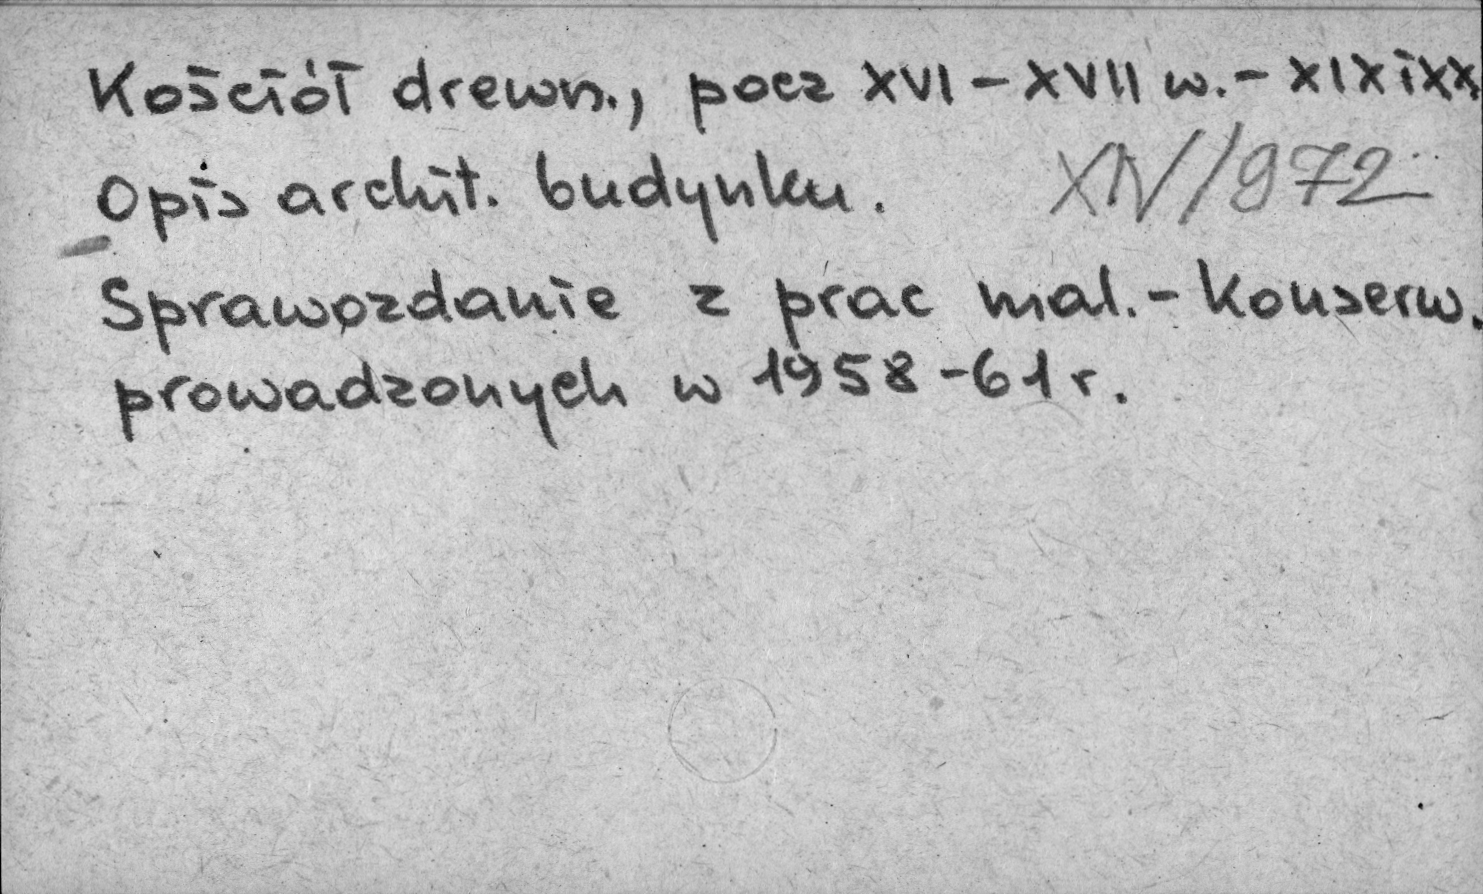 Kościół drewn., pocz XVI - XVII w. - XIX i XX
Opis archit. budynku.
XIV/972
Sprawozdanie z prac mal. - konserw.
prowadzonych w 1958-61 r.